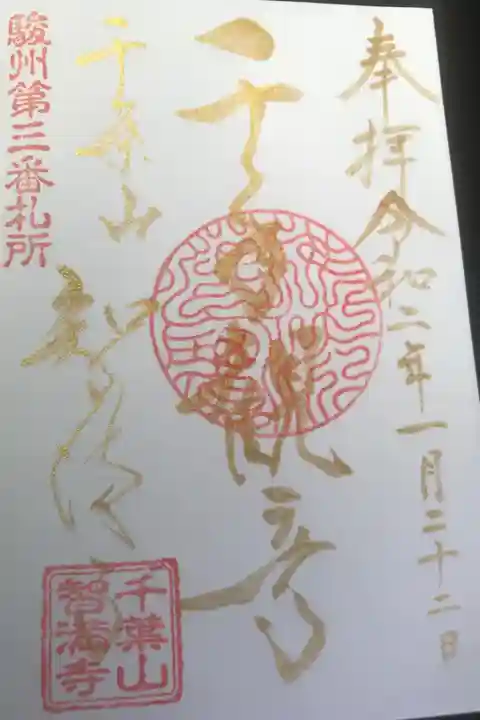 奉拝 令和二年一月二十二日
千手観音
千葉山 智満寺
駿州第三番札所
千葉山
智満寺